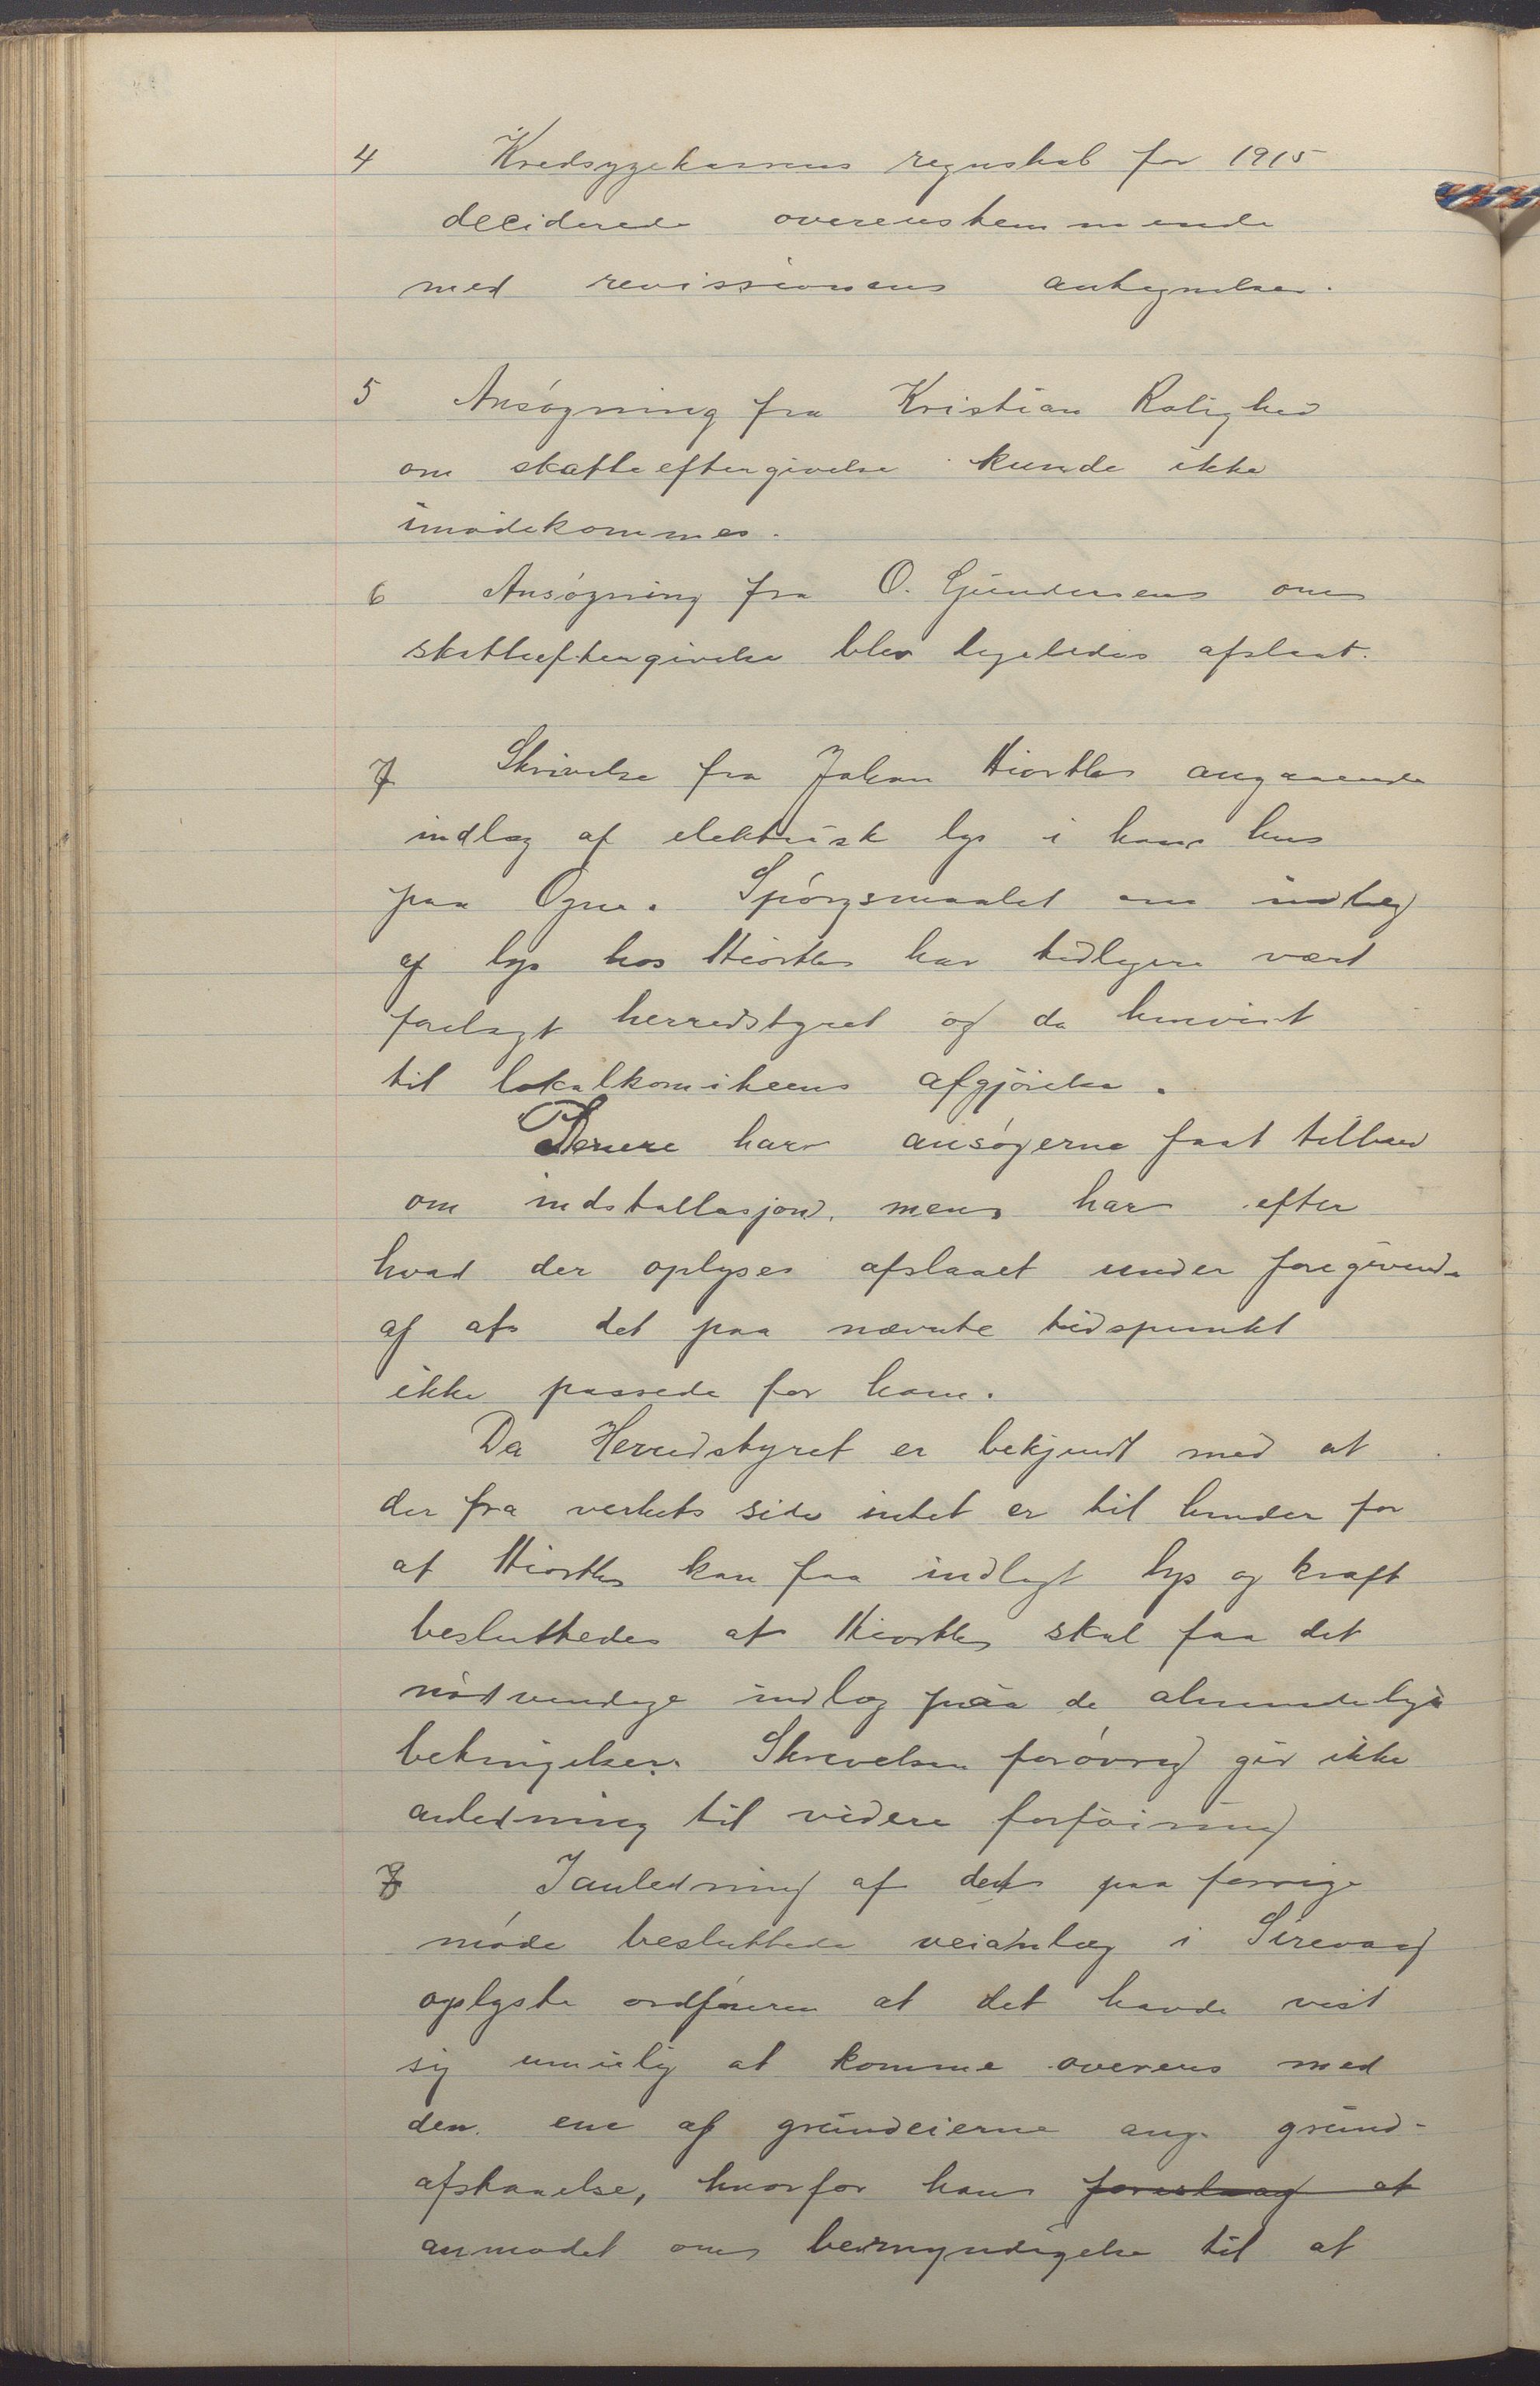 4 Kredsygekassens regnskab for 1915
deciderede overensstemmende
med revissionens antegnelser.
5 Ansøgning fra Kristian Rolighed
om skatteeftergivelse kunde ikke
imødekommes.
6 Ansøgning fra O. Gundersens om
skatteeftergivelse blev ligeledes afslaat.
7 Skrivelse fra Johan Hiorth angaaende
indlæg af elektrisk lys i hans hus
paa Ogna. Spørgsmaalet om indlæg
af lys hos Hiorth har tidligere vært
forelagt herredstyret og da henvist
til lokalkomiteens afgjørelse.
Senere har ansøgerne faat tilbud
om indstallasjon, men har efter
hvad der oplyses afslaaet under foregivende
af at det paa nævnte tidspunkt
ikke passede for ham.
Da Herredstyret er bekjendt med at
der fra verkets side intet er til hinder for
at Hiorth kan faa indlagt lys og kraft
besluttedes at Hiorth skal faa det
nødvendige indlæg paa de almindelige
betingelser. Skrivelsen forøvrig gir ikke
anledning til videre forføining
8 I anledning af det paa forrige
møde besluttede veianlæg i Sirevaag
oplyste ordføreren at det havde vist
sig umulig at komme overens med
den ene af grundeierne ang. grund-
afstaaelse, hvorfor han foreslaag at
anmodet om bemyndigelse til at